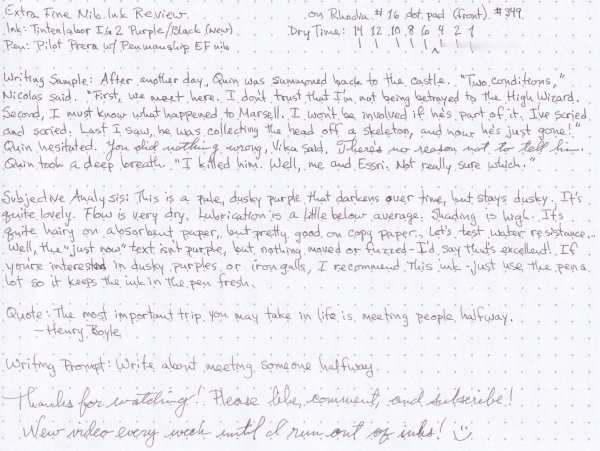 Extra Fine Nib Ink Review on Rhodia #16 dot pad (front). #349
Ink: Tintenlabor IG2 Purple/Black (New) Dry Time: 14 12 10 8 6 4 2 1
Pen: Pilot Prera w/ Penmanship EF nib
Writing Sample: After another day, Quin was summoned back to the castle. "Two conditions,"
Nicolas said. "First, we meet here. I don't trust that I'm not being betrayed to the High Wizard.
Second, I must know what happened to Marsell. I won't be involved if he's part of it. I've scried
and scried. Last I saw, he was collecting the head off a skeleton, and now he's just gone!"
Quin hesitated. You did nothing wrong, Vika said. There's no reason not to tell him.
Quin took a deep breath. "I killed him. Well, me and Essri. Not really sure which."
Subjective Analysis: This is a pale, dusky purple that darkens over time, but stays dusky. It's
quite lovely. Flow is very dry. Lubrication is a little below average. Shading is high. It's
quite hairy on absorbent paper, but pretty good on copy paper. Let's test water resistance...
Well, the "just now" text isn't purple, but nothing moved or fuzzed - I'd say that's excellent! If
you're interested in dusky purples or iron galls, I recommend this ink - just use the pen a
lot so it keeps the ink in the pen fresh.
Quote: The most important trip you may take in life is meeting people halfway.
- Henry Boyle
Writing Prompt: Write about meeting someone halfway.
Thanks for watching! Please like, comment, and subscribe!
New video every week until I run out of inks!